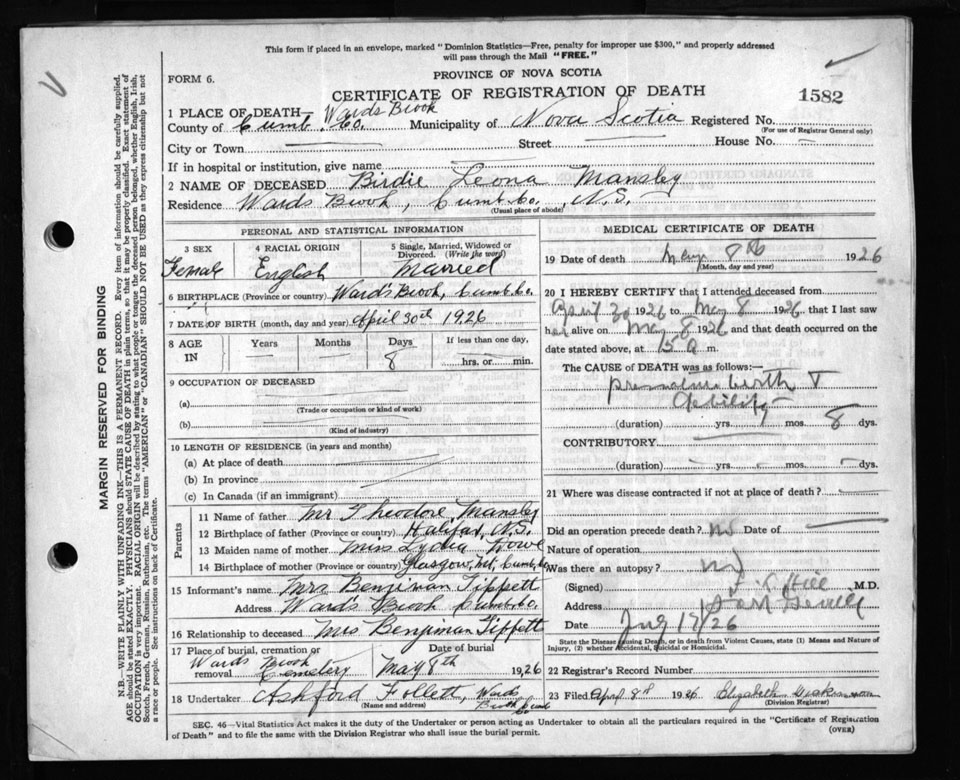 This form if placed in an envelope, marked "Dominion Statistics—Free, penalty for improper use $300," and properly addressed
will pass through the Mail "FREE."
FORM 6.
PROVINCE OF NOVA SCOTIA
CERTIFICATE OF REGISTRATION OF DEATH
1582
1 PLACE OF DEATH— Wards Brook
County of Cumb. Co. Municipality of Nova Scotia Registered No.
(For use of Registrar General only)
City or Town Street House No.
If in hospital or institution, give name
2 NAME OF DECEASED Birdie Leona Mansley
Residence Wards Brook, Cumb. Co., N.S.
(Usual place of abode)
PERSONAL AND STATISTICAL INFORMATION
3 SEX 4 RACIAL ORIGIN 5 Single, Married, Widowed or
Divorced. (Write the word)
Female English Married
6 BIRTHPLACE (Province or country) Ward's Brook, Cumb. Co.
7 DATE OF BIRTH (month, day and year) April 30th 1926
8 AGE IN Years Months Days If less than one day,
8 hrs. or min.
9 OCCUPATION OF DECEASED
(a)
(Trade or occupation or kind of work)
(b)
(Kind of industry)
10 LENGTH OF RESIDENCE (in years and months)
(a) At place of death
(b) In province
(c) In Canada (if an immigrant)
Parents
11 Name of father Mr Theodore Mansley
12 Birthplace of father (Province or country) Halifax, N.S.
13 Maiden name of mother Miss Lydia Rowe
14 Birthplace of mother (Province or country) Glasgow, Mt, Cumb. Co
15 Informant's name Mrs Benjiman Tippett
Address Ward's Brook Cumb. Co.
16 Relationship to deceased Mrs Benjiman Tippett
17 Place of burial, cremation or removal Date of burial
Wards Brook Cemetery May 8th 1926
18 Undertaker Ashford Follett, Wards Brook
(Name and address)
MEDICAL CERTIFICATE OF DEATH
19 Date of death May 8th 1926
(Month, day and year)
20 I HEREBY CERTIFY that I attended deceased from
April 30 1926 to May 8 1926 that I last saw
her alive on May 8 1926 and that death occurred on the
date stated above, at m.
The CAUSE of DEATH was as follows:—
premature birth &
debility
(duration) yrs. mos. 8 dys.
CONTRIBUTORY
(duration) yrs. mos. dys.
21 Where was disease contracted if not at place of death?
Did an operation precede death? no Date of
Nature of operation
Was there an autopsy? no
(Signed) Hill M.D.
Address
Date July 17/26
State the Disease causing Death, or in death from Violent Causes, state (1) Means and Nature of
Injury, (2) whether Accidental, Suicidal or Homicidal.
22 Registrar's Record Number
23 Filed April 8th 1926 Elizabeth
(Division Registrar)
SEC. 46—Vital Statistics Act makes it the duty of the Undertaker or person acting as Undertaker to obtain all the particulars required in the "Certificate of Registration
of Death" and to file the same with the Division Registrar who shall issue the burial permit.
(OVER)
MARGIN RESERVED FOR BINDING
N.B.—WRITE PLAINLY WITH UNFADING INK—THIS IS A PERMANENT RECORD. Every item of information should be carefully supplied.
AGE should be stated EXACTLY. PHYSICIANS should STATE CAUSE OF DEATH in plain terms, so that it may be properly classified. Exact statement of
OCCUPATION is very important. RACIAL ORIGIN will be described by stating to what people or tongue the deceased person belonged, whether English, Irish,
Scotch, French, German, Russian, Ruthenian, etc. The terms "AMERICAN" or "CANADIAN" SHOULD NOT BE USED as they express citizenship but not
a race or people. See instructions on back of Certificate.